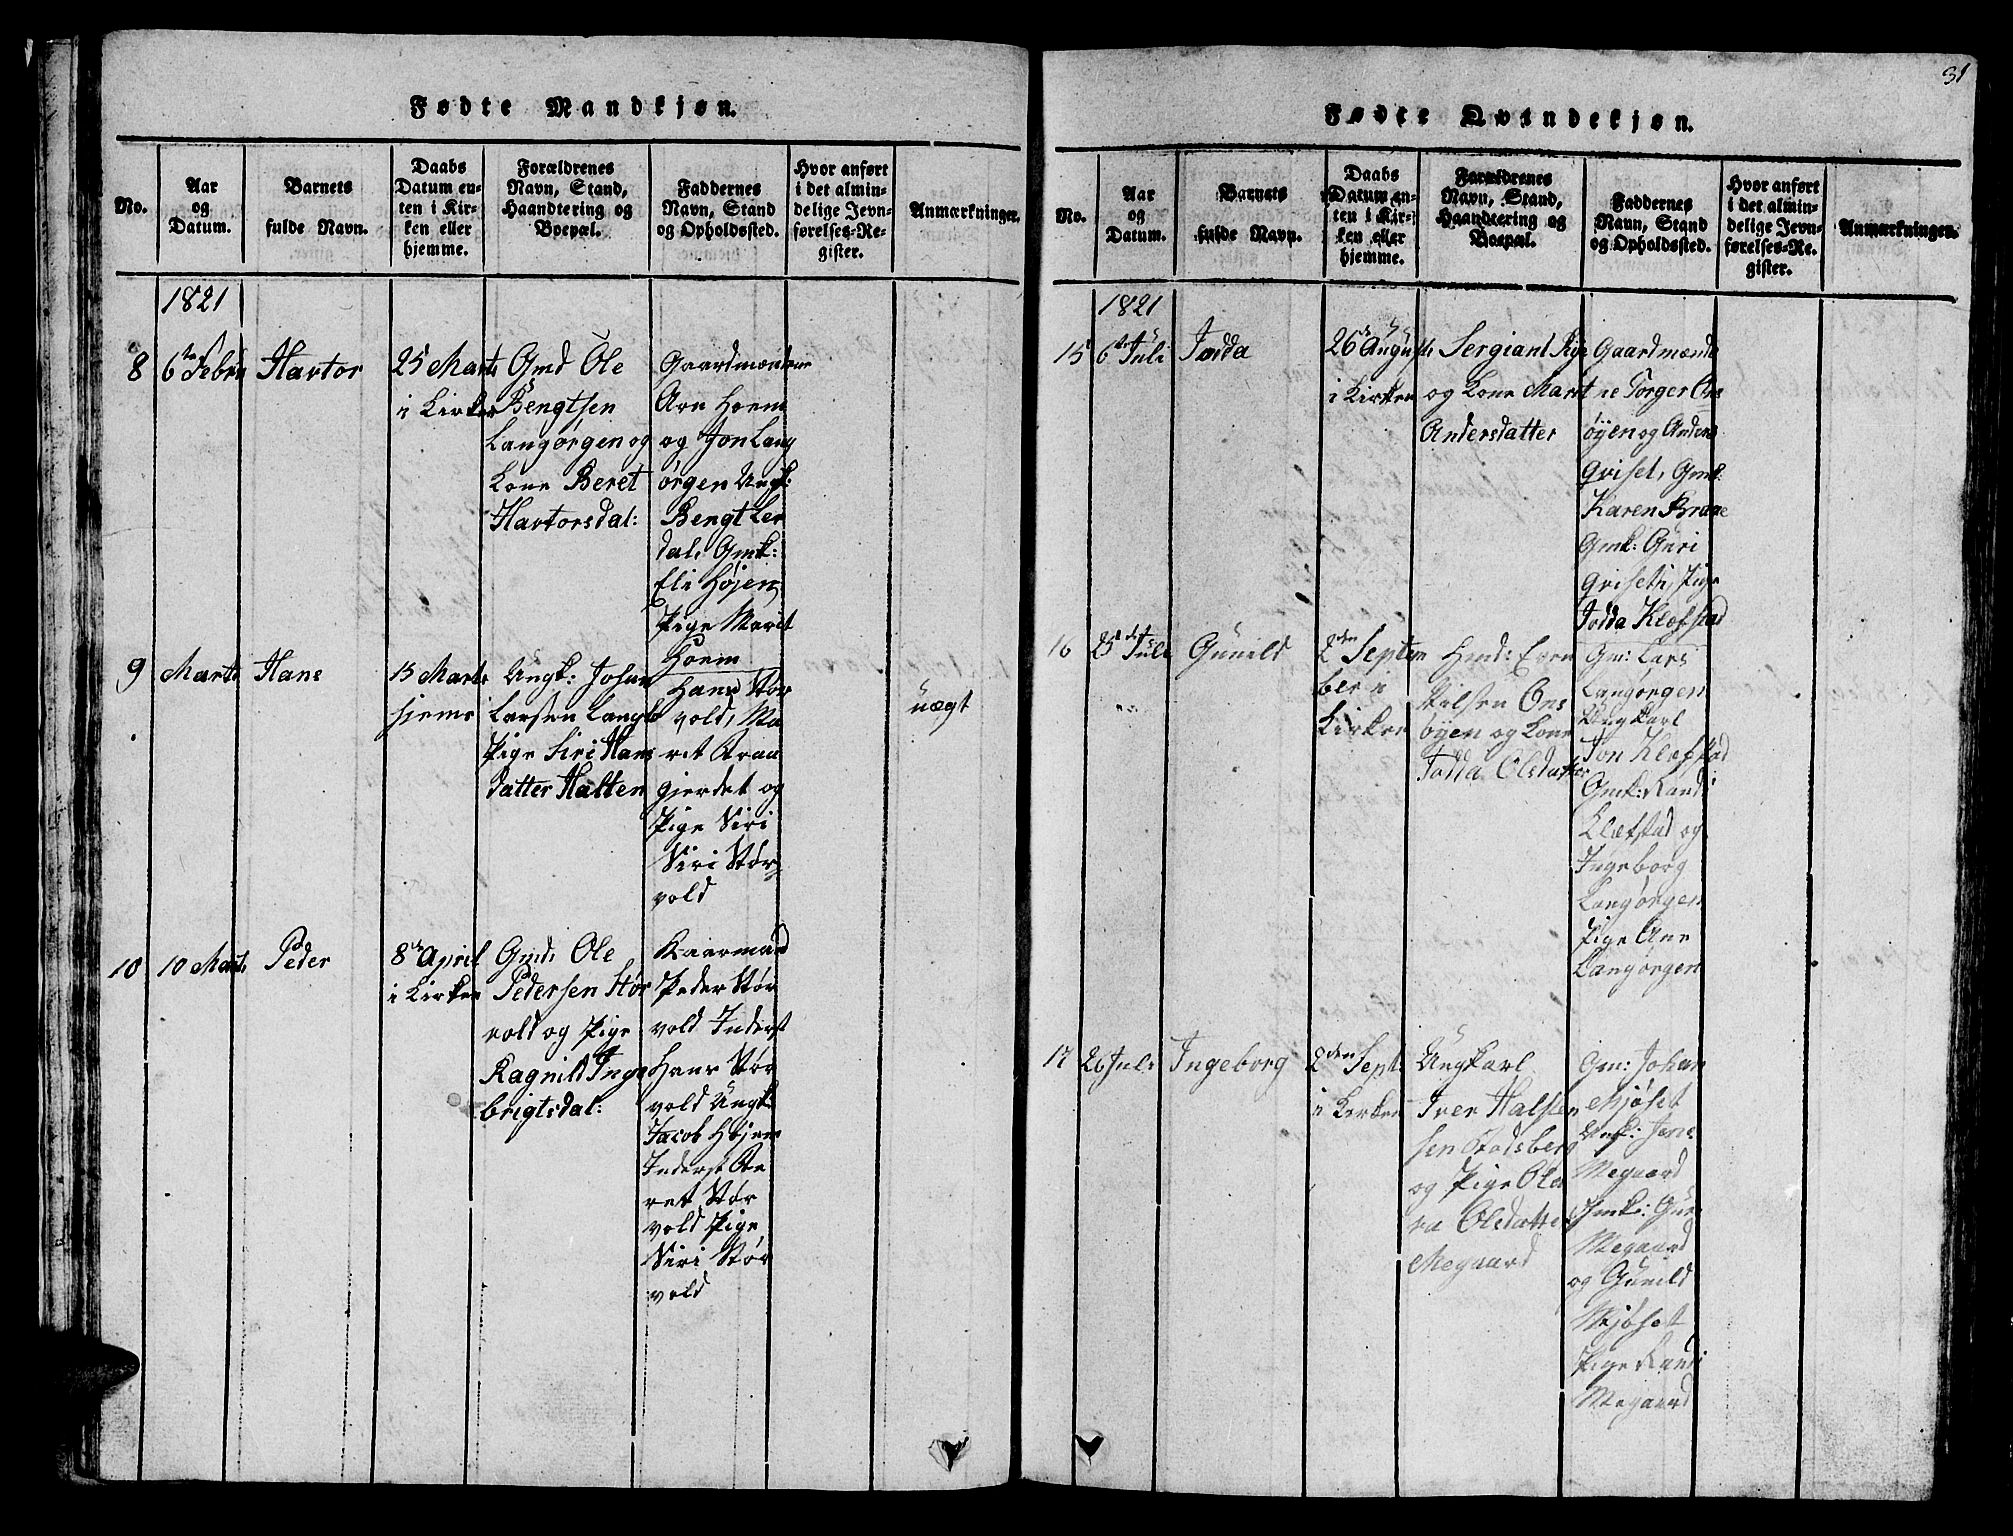 31
Fødte Mandkjøn.
No.
Aar
og
Datum.
Barnets
fulde Navn.
Daabs
Datum en-
ten i Kir-
ken eller
hjemme.
Forældrenes
Navn, Stand,
Haandtering og
Boepæl.
Faddernes
Navn, Stand
og Opholdssted.
Hvor anført
i det almin-
delige Jevn-
førelses-Re-
gister.
Anmærkninger.
1821
8
6te Febru
Havtor
25 Marts
i Kirken
Gmd Ole
Bengtsen
Langørgen og
Kone Beret
Havtorsdal:
Gaardmændene
Arn Hoem
og Jon Lang
ørgen Ungk:
Bengt Ler
dal, Gmk:
Eli Højen
Pige Marit
Hoem
9
Marts
Hans
13 Marts
hjeme
Ungk: Johan
Larsen Langl
Pige Siri Hans
datter Halten
Hans Stør
vold, Ma
ret
gjerdet og
Pige Siri
Siri Stør
vold
uægt
10
10 Marts
Peder
8de April
i Kirken
Gmd: Ole
Pedersen Stør
vold og Pige
Ragnild Inge
brigtsdal:
Kaarmand
Peder Stør
vold Inderst
Hans Stør
vold Ungk:
Jacob Højen
Inderst Be
ret Stør
vold Pige
Siri Stør
vold
Fødte Qvindekjøn.
No.
Aar
og
Datum.
Barnets
fulde Navn.
Daabs
Datum en-
ten i Kir-
ken eller
hjemme.
Forældrenes
Navn, Stand,
Haandtering og
Boepæl.
Faddernes
Navn, Stand
og Opholdssted.
Hvor anført
i det almin-
delige Jevn-
førelses-Re-
gister.
Anmærkninger.
1821
15
6te Juli
Jodda
26de August
i Kirken
Sergiant
og Kone Marit
Andersdatter
Gaardmænde
ne Torger Ons
øyen og Anders
Qviset, Gmk:
Karen Braae
Gmk: Guri
Qviseth, Pige
Jodda Klefstad
16
25de Juli
Gunild
2den Septem
ber i
Kirken
Hmd: Even
Nilsen Ons
øyen og Kone
Jodda Olsdatter
Gm: Lars
Langørgen
Ungkarl
Jon Klefstad
Gmk: Randi
Klefstad og
Ingeborg
Langørgen
Pige Ane
Langørgen
17
26 Juli
Ingeborg
2den Sept:
i Kirken
Ungkarl
Iver Halsten
sen Stadsberg
og Pige Ole
va Olsdatter
Megaard
Gm: Johan
Mjøset
Ungk: Jens
Megaard
Gmk: Guri
Megaard
og Gunild
Mjøset
Pige Randi
Megaard